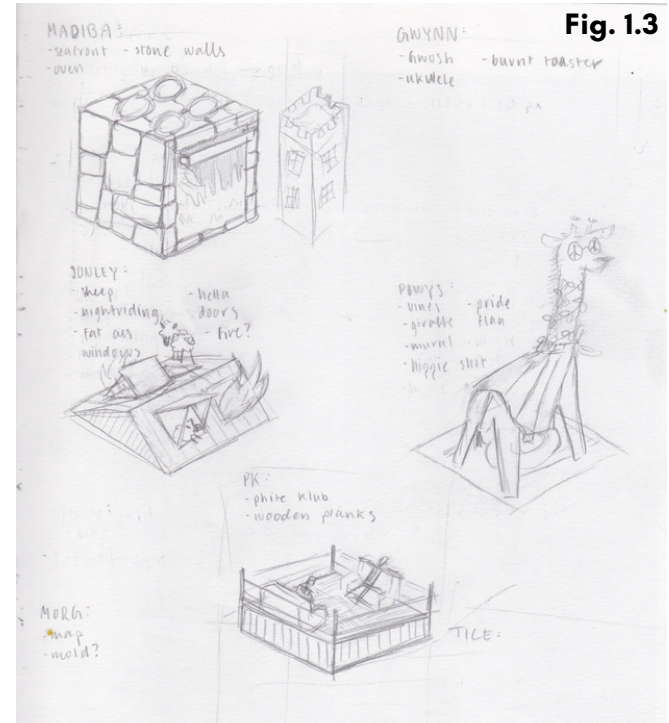 Fig. 1.3
MADIBA:
- seafront - stone walls
- oven
GWYNN:
- Gwosh - burnt toaster
- ukulele
SUNLEY:
- sheep - hella
- nightriding doors
- fat ass - fire?
windows
POWYS:
- vines - pride
- giraffe flag
- mural
- hippie shit
PK:
- phite klub
- wooden planks
MORG:
- map
- mold?
TICE: